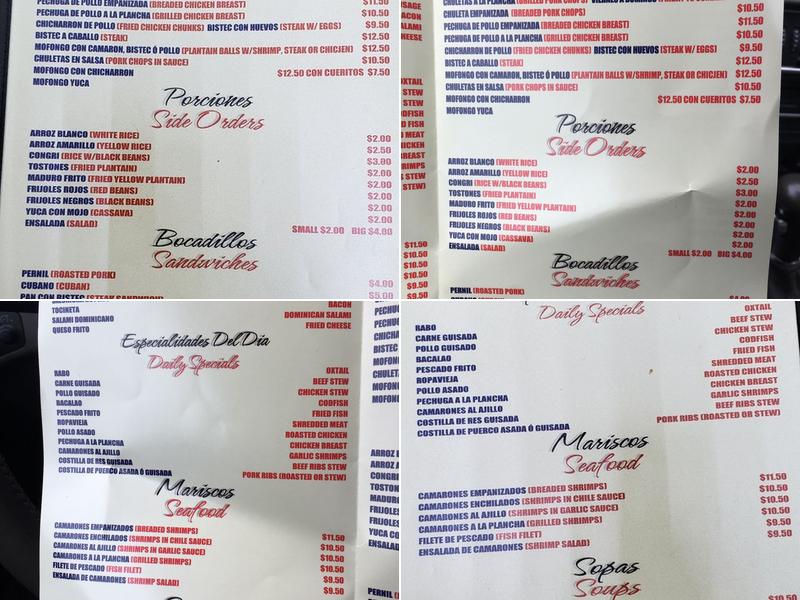 PECHUGA DE POLLO EMPANIZADA (BREADED CHICKEN BREAST) $11.50
PECHUGA DE POLLO A LA PLANCHA (GRILLED CHICKEN BREAST) $10.50
CHICHARRON DE POLLO (FRIED CHICKEN CHUNKS) BISTEC CON HUEVOS (STEAK W/ EGGS) $9.50
BISTEC A CABALLO (STEAK) $12.50
MOFONGO CON CAMARON, BISTEC Ó POLLO (PLANTAIN BALLS W/SHRIMP, STEAK OR CHICJEN) $12.50
CHULETAS EN SALSA (PORK CHOPS IN SAUCE) $10.50
MOFONGO CON CHICHARRON $12.50 CON CUERITOS $7.50
MOFONGO YUCA
Porciones
Side Orders
ARROZ BLANCO (WHITE RICE) $2.00
ARROZ AMARILLO (YELLOW RICE) $2.50
CONGRI (RICE W/BLACK BEANS) $3.00
TOSTONES (FRIED PLANTAIN) $2.00
MADURO FRITO (FRIED YELLOW PLANTAIN) $2.00
FRIJOLES ROJOS (RED BEANS) $2.00
FRIJOLES NEGROS (BLACK BEANS) $2.00
YUCA CON MOJO (CASSAVA) $2.00
ENSALADA (SALAD) SMALL $2.00 BIG $4.00
Bocadillos
Sandwiches
PERNIL (ROASTED PORK)
CUBANO (CUBAN) $4.00
PAN CON BISTEC (STEAK SANDWICH) $5.00
CHULETA EMPANIZADA (BREADED PORK CHOPS) $10.50
PECHUGA DE POLLO EMPANIZADA (BREADED CHICKEN BREAST) $11.50
PECHUGA DE POLLO A LA PLANCHA (GRILLED CHICKEN BREAST) $10.50
CHICHARRON DE POLLO (FRIED CHICKEN CHUNKS) BISTEC CON HUEVOS (STEAK W/ EGGS) $9.50
BISTEC A CABALLO (STEAK) $12.50
MOFONGO CON CAMARON, BISTEC Ó POLLO (PLANTAIN BALLS W/SHRIMP, STEAK OR CHICJEN) $12.50
CHULETAS EN SALSA (PORK CHOPS IN SAUCE) $10.50
MOFONGO CON CHICHARRON $12.50 CON CUERITOS $7.50
MOFONGO YUCA
Porciones
Side Orders
ARROZ BLANCO (WHITE RICE) $2.00
ARROZ AMARILLO (YELLOW RICE) $2.50
CONGRI (RICE W/BLACK BEANS) $3.00
TOSTONES (FRIED PLANTAIN) $2.00
MADURO FRITO (FRIED YELLOW PLANTAIN) $2.00
FRIJOLES ROJOS (RED BEANS) $2.00
FRIJOLES NEGROS (BLACK BEANS) $2.00
YUCA CON MOJO (CASSAVA) $2.00
ENSALADA (SALAD) SMALL $2.00 BIG $4.00
Bocadillos
Sandwiches
PERNIL (ROASTED PORK)
TOCINETA BACON
SALAMI DOMINICANO DOMINICAN SALAMI
QUESO FRITO FRIED CHEESE
Especialidades Del Dia
Daily Specials
RABO OXTAIL
CARNE GUISADA BEEF STEW
POLLO GUISADO CHICKEN STEW
BACALAO CODFISH
PESCADO FRITO FRIED FISH
ROPAVIEJA SHREDDED MEAT
POLLO ASADO ROASTED CHICKEN
PECHUGA A LA PLANCHA CHICKEN BREAST
CAMARONES AL AJILLO GARLIC SHRIMPS
COSTILLA DE RES GUISADA BEEF RIBS STEW
COSTILLA DE PUERCO ASADA Ó GUISADA PORK RIBS (ROASTED OR STEW)
Mariscos
Seafood
CAMARONES EMPANIZADOS (BREADED SHRIMPS) $11.50
CAMARONES ENCHILADOS (SHRIMPS IN CHILE SAUCE) $10.50
CAMARONES AL AJILLO (SHRIMPS IN GARLIC SAUCE) $10.50
CAMARONES A LA PLANCHA (GRILLED SHRIMPS) $10.50
FILETE DE PESCADO (FISH FILET) $9.50
ENSALADA DE CAMARONES (SHRIMP SALAD) $9.50
Daily Specials
RABO OXTAIL
CARNE GUISADA BEEF STEW
POLLO GUISADO CHICKEN STEW
BACALAO CODFISH
PESCADO FRITO FRIED FISH
ROPAVIEJA SHREDDED MEAT
POLLO ASADO ROASTED CHICKEN
PECHUGA A LA PLANCHA CHICKEN BREAST
CAMARONES AL AJILLO GARLIC SHRIMPS
COSTILLA DE RES GUISADA BEEF RIBS STEW
COSTILLA DE PUERCO ASADA Ó GUISADA PORK RIBS (ROASTED OR STEW)
Mariscos
Seafood
CAMARONES EMPANIZADOS (BREADED SHRIMPS) $11.50
CAMARONES ENCHILADOS (SHRIMPS IN CHILE SAUCE) $10.50
CAMARONES AL AJILLO (SHRIMPS IN GARLIC SAUCE) $10.50
CAMARONES A LA PLANCHA (GRILLED SHRIMPS) $10.50
FILETE DE PESCADO (FISH FILET) $9.50
ENSALADA DE CAMARONES (SHRIMP SALAD) $9.50
Sopas
Soups
$10.50